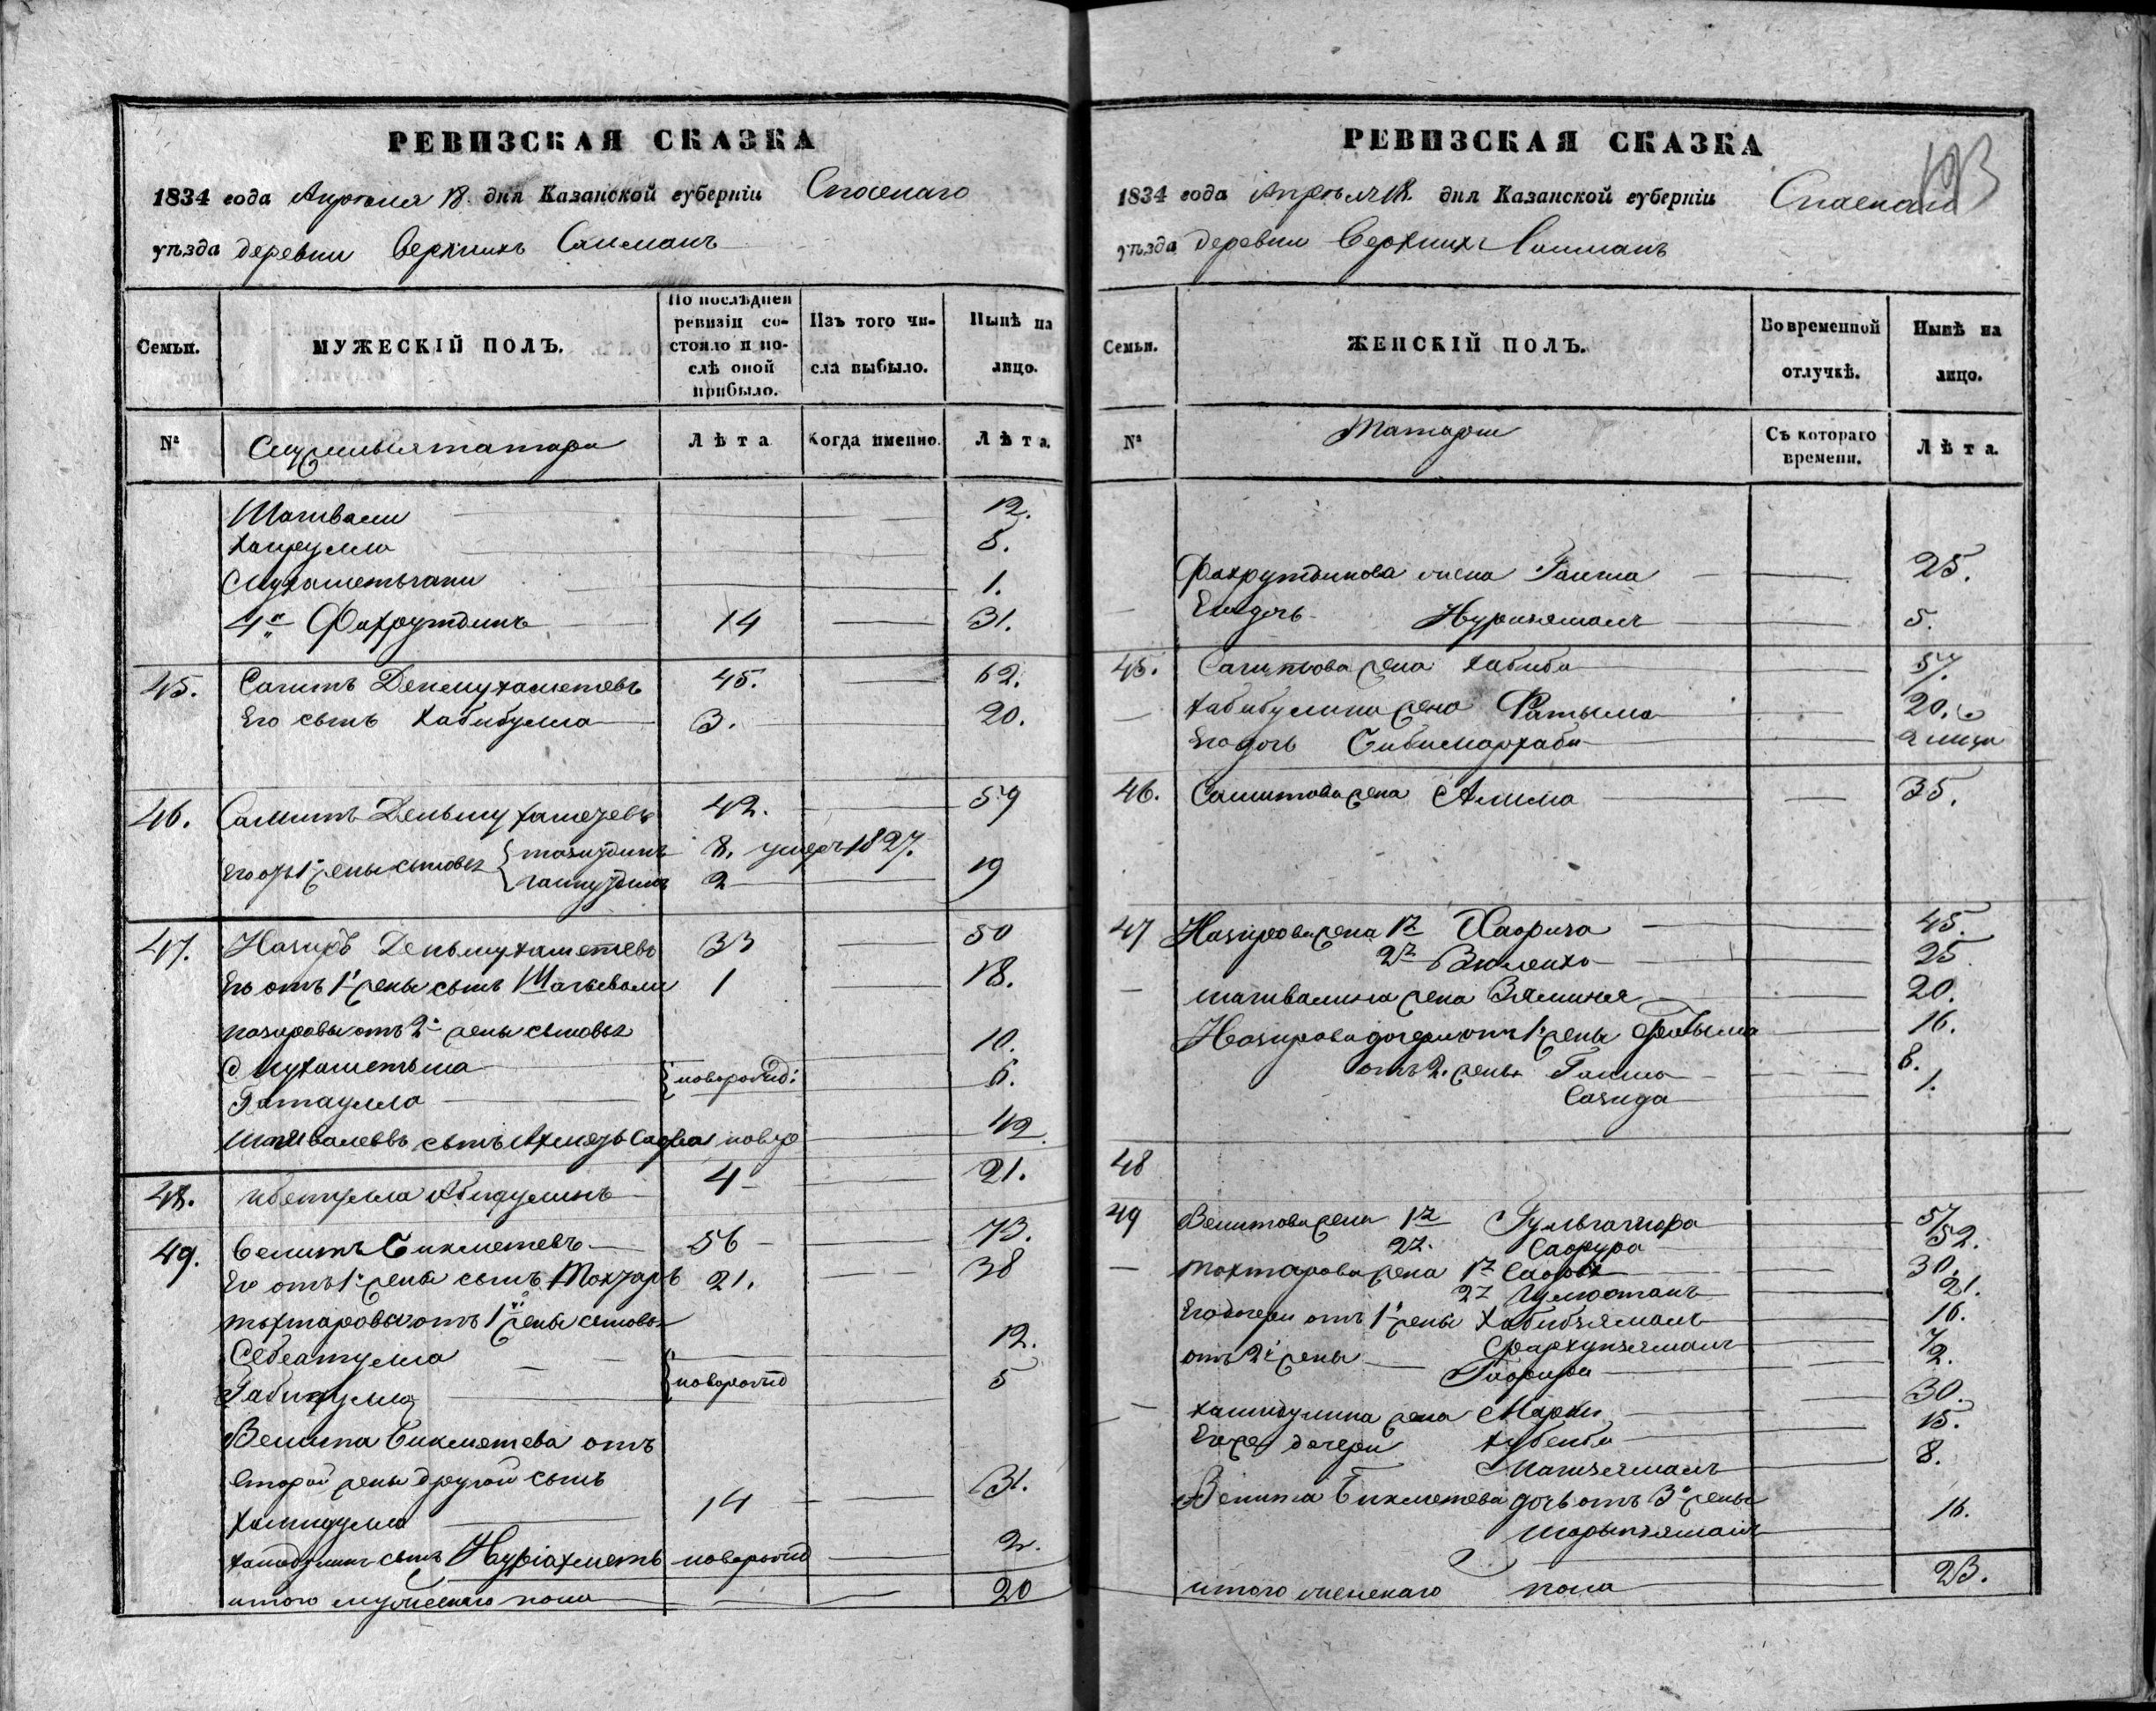 РЕВИЗСКАЯ СКАЗКА
1834 года Апреля 18 дня Казанской губерніи Спаскаго
уѣзда деревни Верхнихъ Салманъ
Семьи.
МУЖЕСКІЙ ПОЛЪ.
По послѣдней ревизіи состояло и послѣ оной прибыло.
Изъ того числа выбыло.
Нынѣ на лицо.
№
татара
Лѣта
Когда именно.
Лѣта.
Шагивали 12.
Хайрулла 8.
Мухаметьгали 1.
4й Фахрутдинъ 14 31.
45. Сагитъ Денмухаметевъ 45. 62.
Его сынъ Хабибулла 3. 20.
46. Салитъ Деньмухаметевъ 42. 59
Его отъ 1й жены сыновья 8. умеръ 1827.
2 19
47. Назиръ Деньмухаметевъ 33 50
Его отъ 1й жены сынъ Шагивали 1 18.
Назировы отъ 2й жены сыновья
Мухаметьша 10.
новорожд: 6.
Гатаулла
Шагивалеевъ сынъ Ахметь Садыкъ новор 1/2.
48. Абидуллинъ 4 21.
49. Велитъ Бикметевъ 56 73.
Его отъ 1й жены сынъ Мохтаръ 21. 38
Мохтаровы отъ 1й жены сыновья
12.
новорожд 5
Габидулла
Велита Бикметева отъ
второй жены другой сынъ
Хамидулла 14 31.
сынъ Нуріахметъ новорожд 2.
итого мужескаго пола 20
РЕВИЗСКАЯ СКАЗКА
193
1834 года Апреля 18. дня Казанской губерніи Спаскаго
уѣзда деревни Верхнихъ Салманъ
Семьи.
ЖЕНСКІЙ ПОЛЪ.
Во временной отлучкѣ.
Нынѣ на лицо.
№
Татарки
Съ котораго времени.
Лѣта.
Фахрутдинова жена Галима 25.
Его дочь Нуриямалъ 5.
45. Сагитова жена Хабиба 57.
Хабибуллина жена Фатыма 20.
Его дочь Бибимархаба
46. Салитова жена Алима 35.
47 Назирова жена 1я 45.
2я 25
Шагивалина жена 20.
Назирова дочери отъ 1й жены Фатыма 16.
отъ 2. жены Галима 8.
Сагида 1.
48
49 Велитова жена 1я 57
2я. Сафура 52.
Мохтарова жена 1я 30.
2я 21.
Его дочери отъ 1й жены Хабибзямалъ 16.
отъ 2й жены Фархунзямалъ 7
2.
Хамидуллина жена 30.
Его дочери Хубейба 15.
8.
Велита Бикметева дочь отъ 3й жены
16.
итого женскаго пола 23.